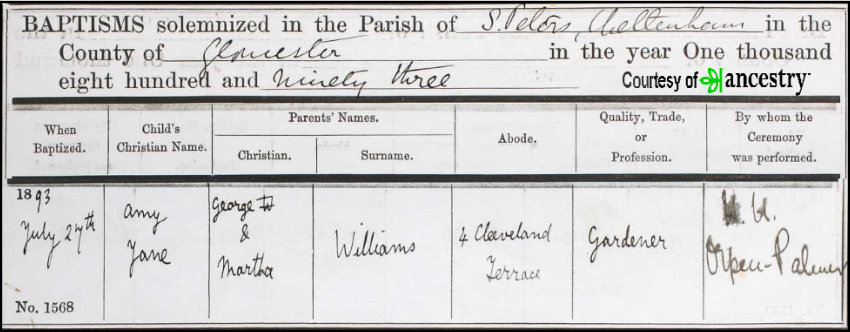 BAPTISMS solemnized in the Parish of St. Peters, Cheltenham in the
County of Gloucester in the year One thousand
eight hundred and ninety three
Courtesy of ancestry
When Baptized.
Child's Christian Name.
Parents' Names.
Christian.
Surname.
Abode.
Quality, Trade, or Profession.
By whom the Ceremony was performed.
1893
July 27th
Amy
Jane
George W
&
Martha
Williams
4 Cleeveland
Terrace
Gardener
Orpen-Palmer
No. 1568